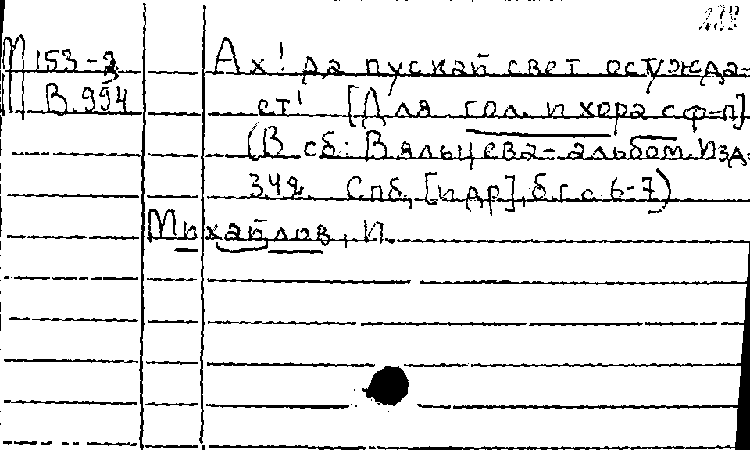 М 153-2
В 994
Ах! да пускай свет осужда-
ет! [Для гол. и хора с ф-п]
(В сб: Вяльцева-альбом. Изд.
Спб, [и др], б.г. с 6-7)
Михайлов, И.